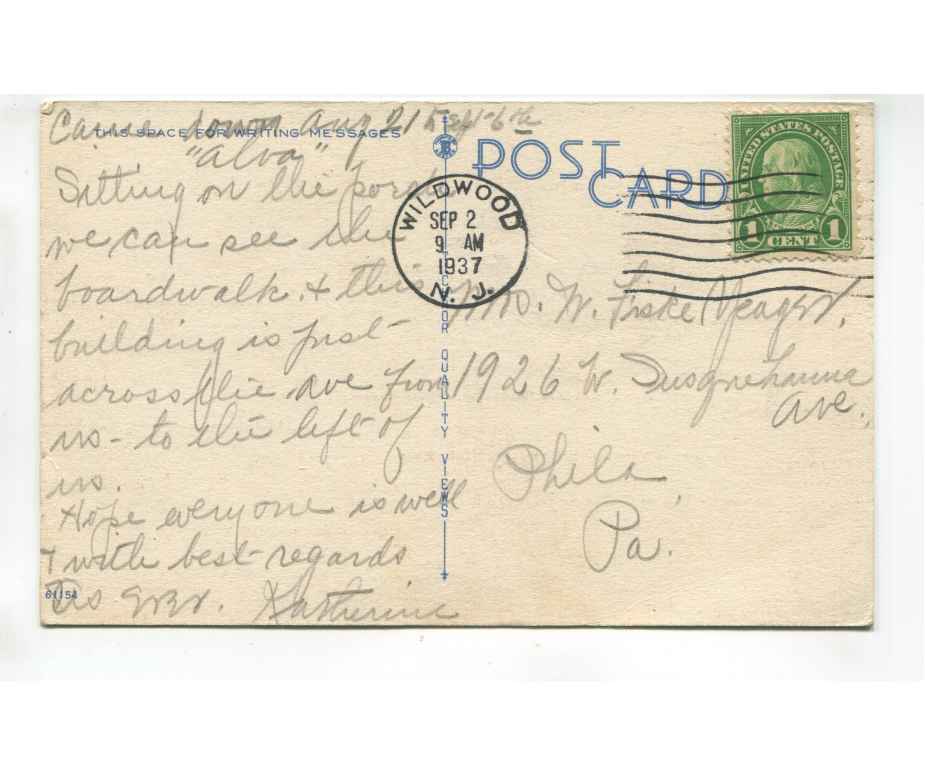 Came down Aug 21 Sept 6th
THIS SPACE FOR WRITING MESSAGES
"Alva"
Sitting on the porch
we can see the
boardwalk. & this
building is just
across the ave from
us - to the left of
us.
Hope everyone is well
& with best regards
As ever. Katherine
61154
POST CARD
WILDWOOD
SEP 2
9 AM
1937
N. J.
FOR QUALITY VIEWS
UNITED STATES POSTAGE
1 CENT 1
Mrs. W. Fiske Yeager,
1926 W. Susquehanna
Ave.
Phila
Pa.